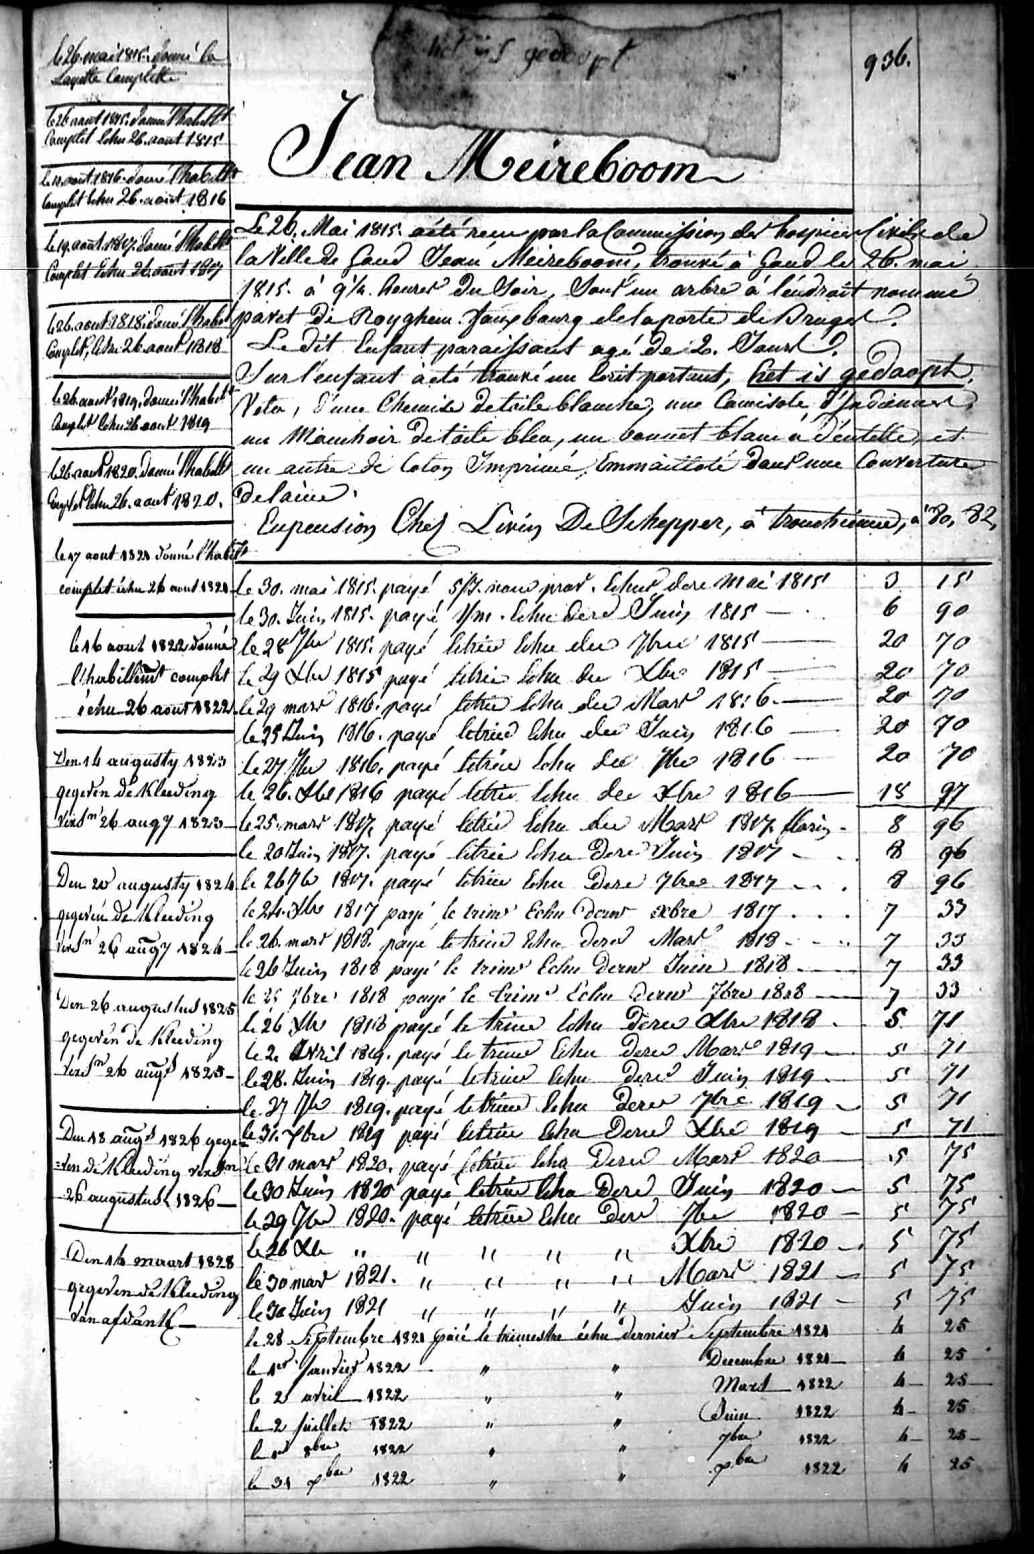 het is gedoopt
936.
Jean Meireboom
le 26 mai 1815. donné la
Layette Complette
le 26 aout 1815. donné l'habillt
Complet Echu 26. aout 1815
le 12. aout 1816. donné l'habillt
Complet Echu 26. aout 1816
le 19. aout 1817. donné l'habillt
Complet Echu 26. aout 1817
le 26. aout 1818. donné l'habillt
Complet, Echu 26. aout 1818
le 26. aout 1819. donné l'habillt
Complet Echu 26 aout 1819
le 26. aout 1820. donné l'habillt
Complet Echu 26. aout 1820.
le 17 aout 1821 donné l'habillt
complet échu 26 aout 1821
le 16 aout 1822 donné
l'habillemt complet
échu 26 aout 1822
Den 14 augusty 1823
gegeven de Kleeding
versn 26 augy 1823
Den 20 augusty 1824
gegeven de Kleeding
versn 26 augy 1824
Den 26 augustus 1825
gegeven de Kleeding
versn 26 augt 1825
Den 18 augt 1826 gege-
=ven de Kleeding versn
26 augustus 1826
Den 14 maart 1828
gegeven de Kleeding
van afdank
Le 26. Mai 1815. a été reçu par la Commission des hospices Civils de
la Ville de Gand Jean Meireboom, trouvé à Gand le 26. mai
1815. à 9¼ heures du Soir, Sous un arbre à l'endroit nommé
pavet De Royghem. faux bourg de la porte de Bruges.
Le dit Enfant paraissant agé de 2. Jours.
Sur l'enfant à été trouvé un Ecrit portant, het is gedaopt.
Vetu, d'une Chemise de toile blanche, une Camisole d'Indienne,
un Mouchoir de toile bleu, un bonnet blanc à d'entelle, et
un autre de Coton Imprimé, Emmailloté dans une Couverture
de laine.
En pension Chez Livin De Schepper, à tronchienne, n° 80, 82,
le 30. mai 1815. payé 5/J. nour prov. Echus dere Mai 1815 3 15
le 30. Juin 1815. payé 1/m. Echu dere Juin 1815 6 90
le 28 7bre 1815. payé letrim Echu der 7bre 1815 20 70
le 29 Xbre 1815 payé letrim Echu der Xbre 1815 20 70
le 29 mars 1816. payé letrim Echu der Mars 1816 20 70
le 25 Juin 1816. payé letrim Echu der Juin 1816 20 70
le 27 7bre 1816. payé letrim Echu der 7bre 1816 20 70
le 26. Xbre 1816 payé letrim Echu der Xbre 1816 18 97
le 25. mars 1817. payé letrim Echu der Mars 1817 florins 8 96
le 20 Juin 1817. payé letrim Echu dere Juin 1817 8 96
le 26 7bre 1817. payé letrim Echu Dere 7bre 1817 8 96
le 24. Xbre 1817 payé le trimr Echu dernr xbre 1817 7 33
le 26. mars 1818. payé le trim Echu dere Mars 1818 7 33
le 26 Juin 1818 payé le trimr Echu Dernr Juin 1818 7 33
le 7bre 1818 payé le trimr Echu dernr 7bre 1818 7 33
le 26 Xbre 1818 payé le trim Echu Dere Xbre 1818 5 71
le 2. Avril 1819. payé le trim Echu dere Mars 1819 5 71
le 28. Juin 1819. payé letrim Echu dere Juin 1819 5 71
le 27 7bre 1819. payé letrim Echu Dere 7bre 1819 5 71
le 31. 1819 payé letrim Echu Dere Xbre 1819 5 71
le 31 mars 1820. payé letrim Echu Dere Mars 1820 5 75
le 30 Juin 1820 payé letrim Echu Dere Juin 1820 5 75
le 29 7bre 1820. payé letrim Echu Dere 7bre 1820 5 75
le 26 Xbre " " " " " Xbre 1820 5 75
le 30 mars 1821. " " " " Mars 1821 5 75
le 30 Juin 1821 " " " " Juin 1821 5 75
le 28 Septembre 1821 païé le trimestre échu dernier Septembre 1821 4 25
le 1er Janvier 1822 " " Decembre 1821 4 25
le 2 avril 1822 " " Mars 1822 4 25
le 2 Juillet 1822 " " Juin 1822 4 25
le 1er 8bre 1822 " " 7bre 1822 4 25
le 31 xbre 1822 " " xbre 1822 4 25